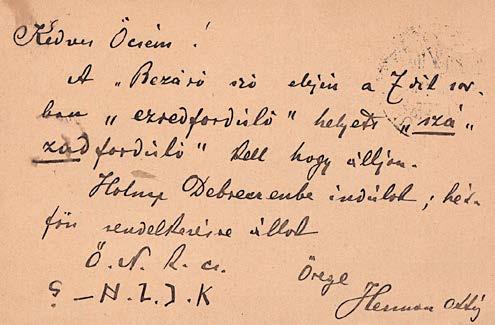 Kedves Öcsém!
A „Bezáró szó elején a 7dik sor-
ban „ezredforduló” helyett „szá„
zadforduló” kell hogy álljon.
Holnap Debreczenbe indulok; hét-
főn rendelkezésre állok
Ö. N. k. cs.
Örege
Herman Ottó